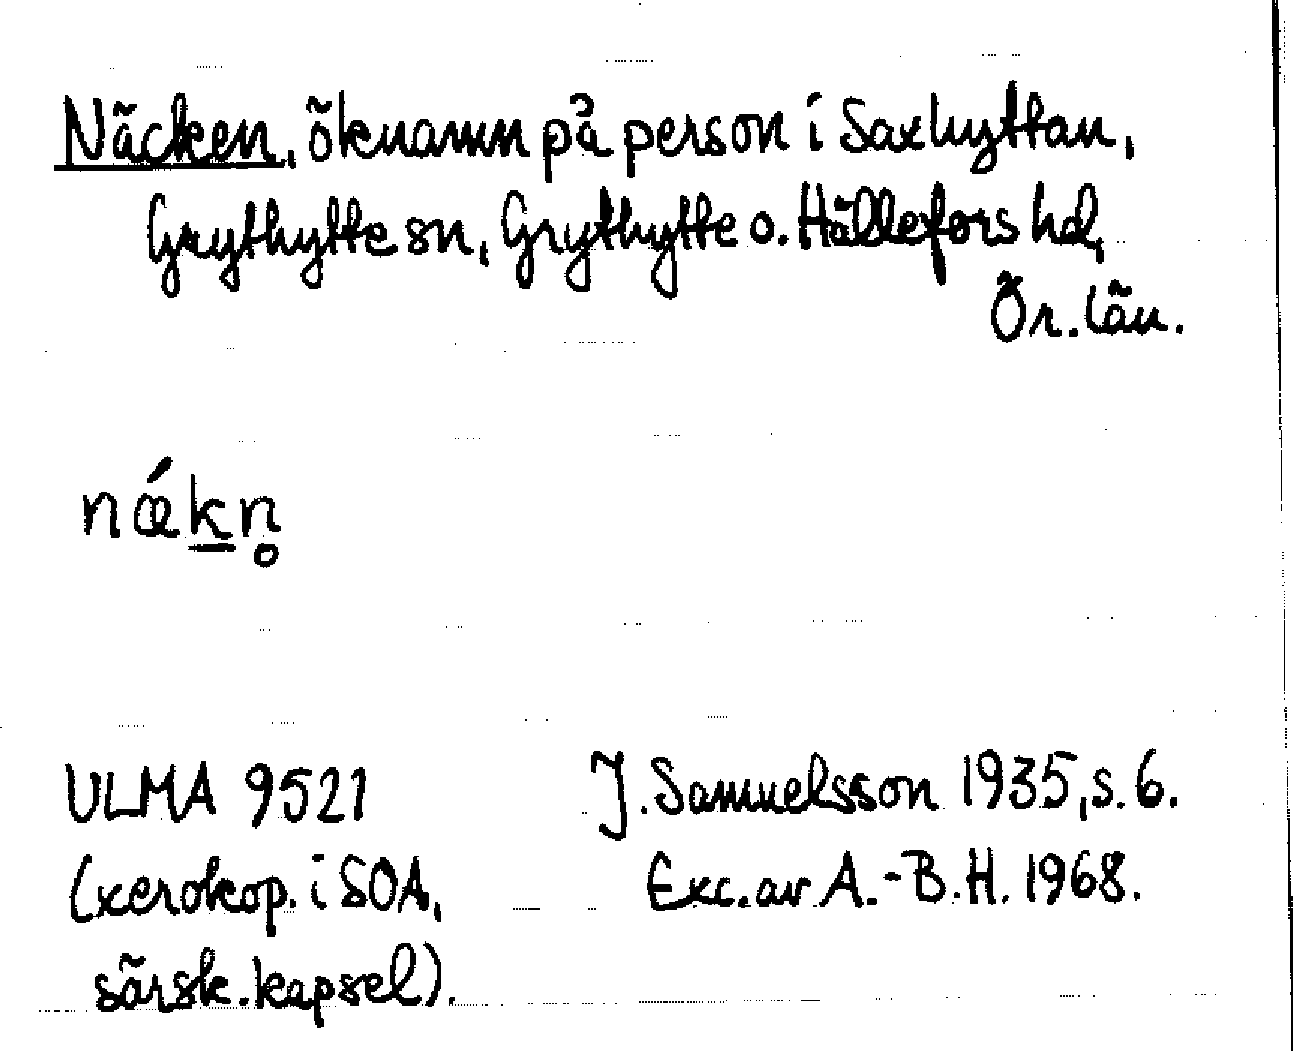 Näcken, öknamn på person i Saxhyttan,
Grythytte sn, Grythytte o. Hällefors hd,
Ör. län.
nǽk̲n̥
ULMA 9521
J. Samuelsson 1935, s. 6.
(xerokop. i SOA,
Exc. av A.-B.H. 1968.
särsk. kapsel).